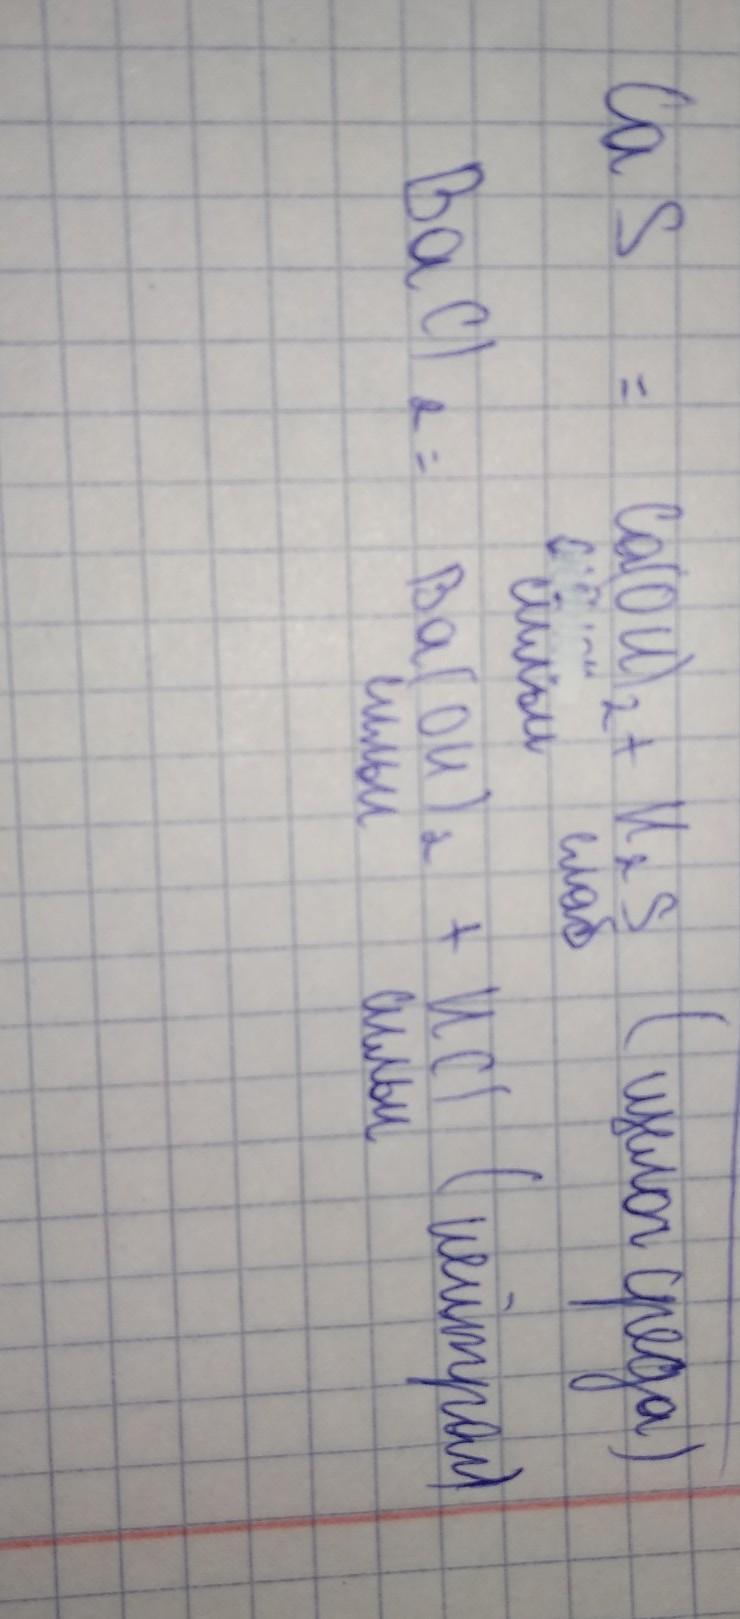 CaS = Ca(OH)₂ + H₂S (щелоч среда)
сильн слаб
BaCl₂ = Ba(OH)₂ + HCl (нейтрал)
сильн сильн